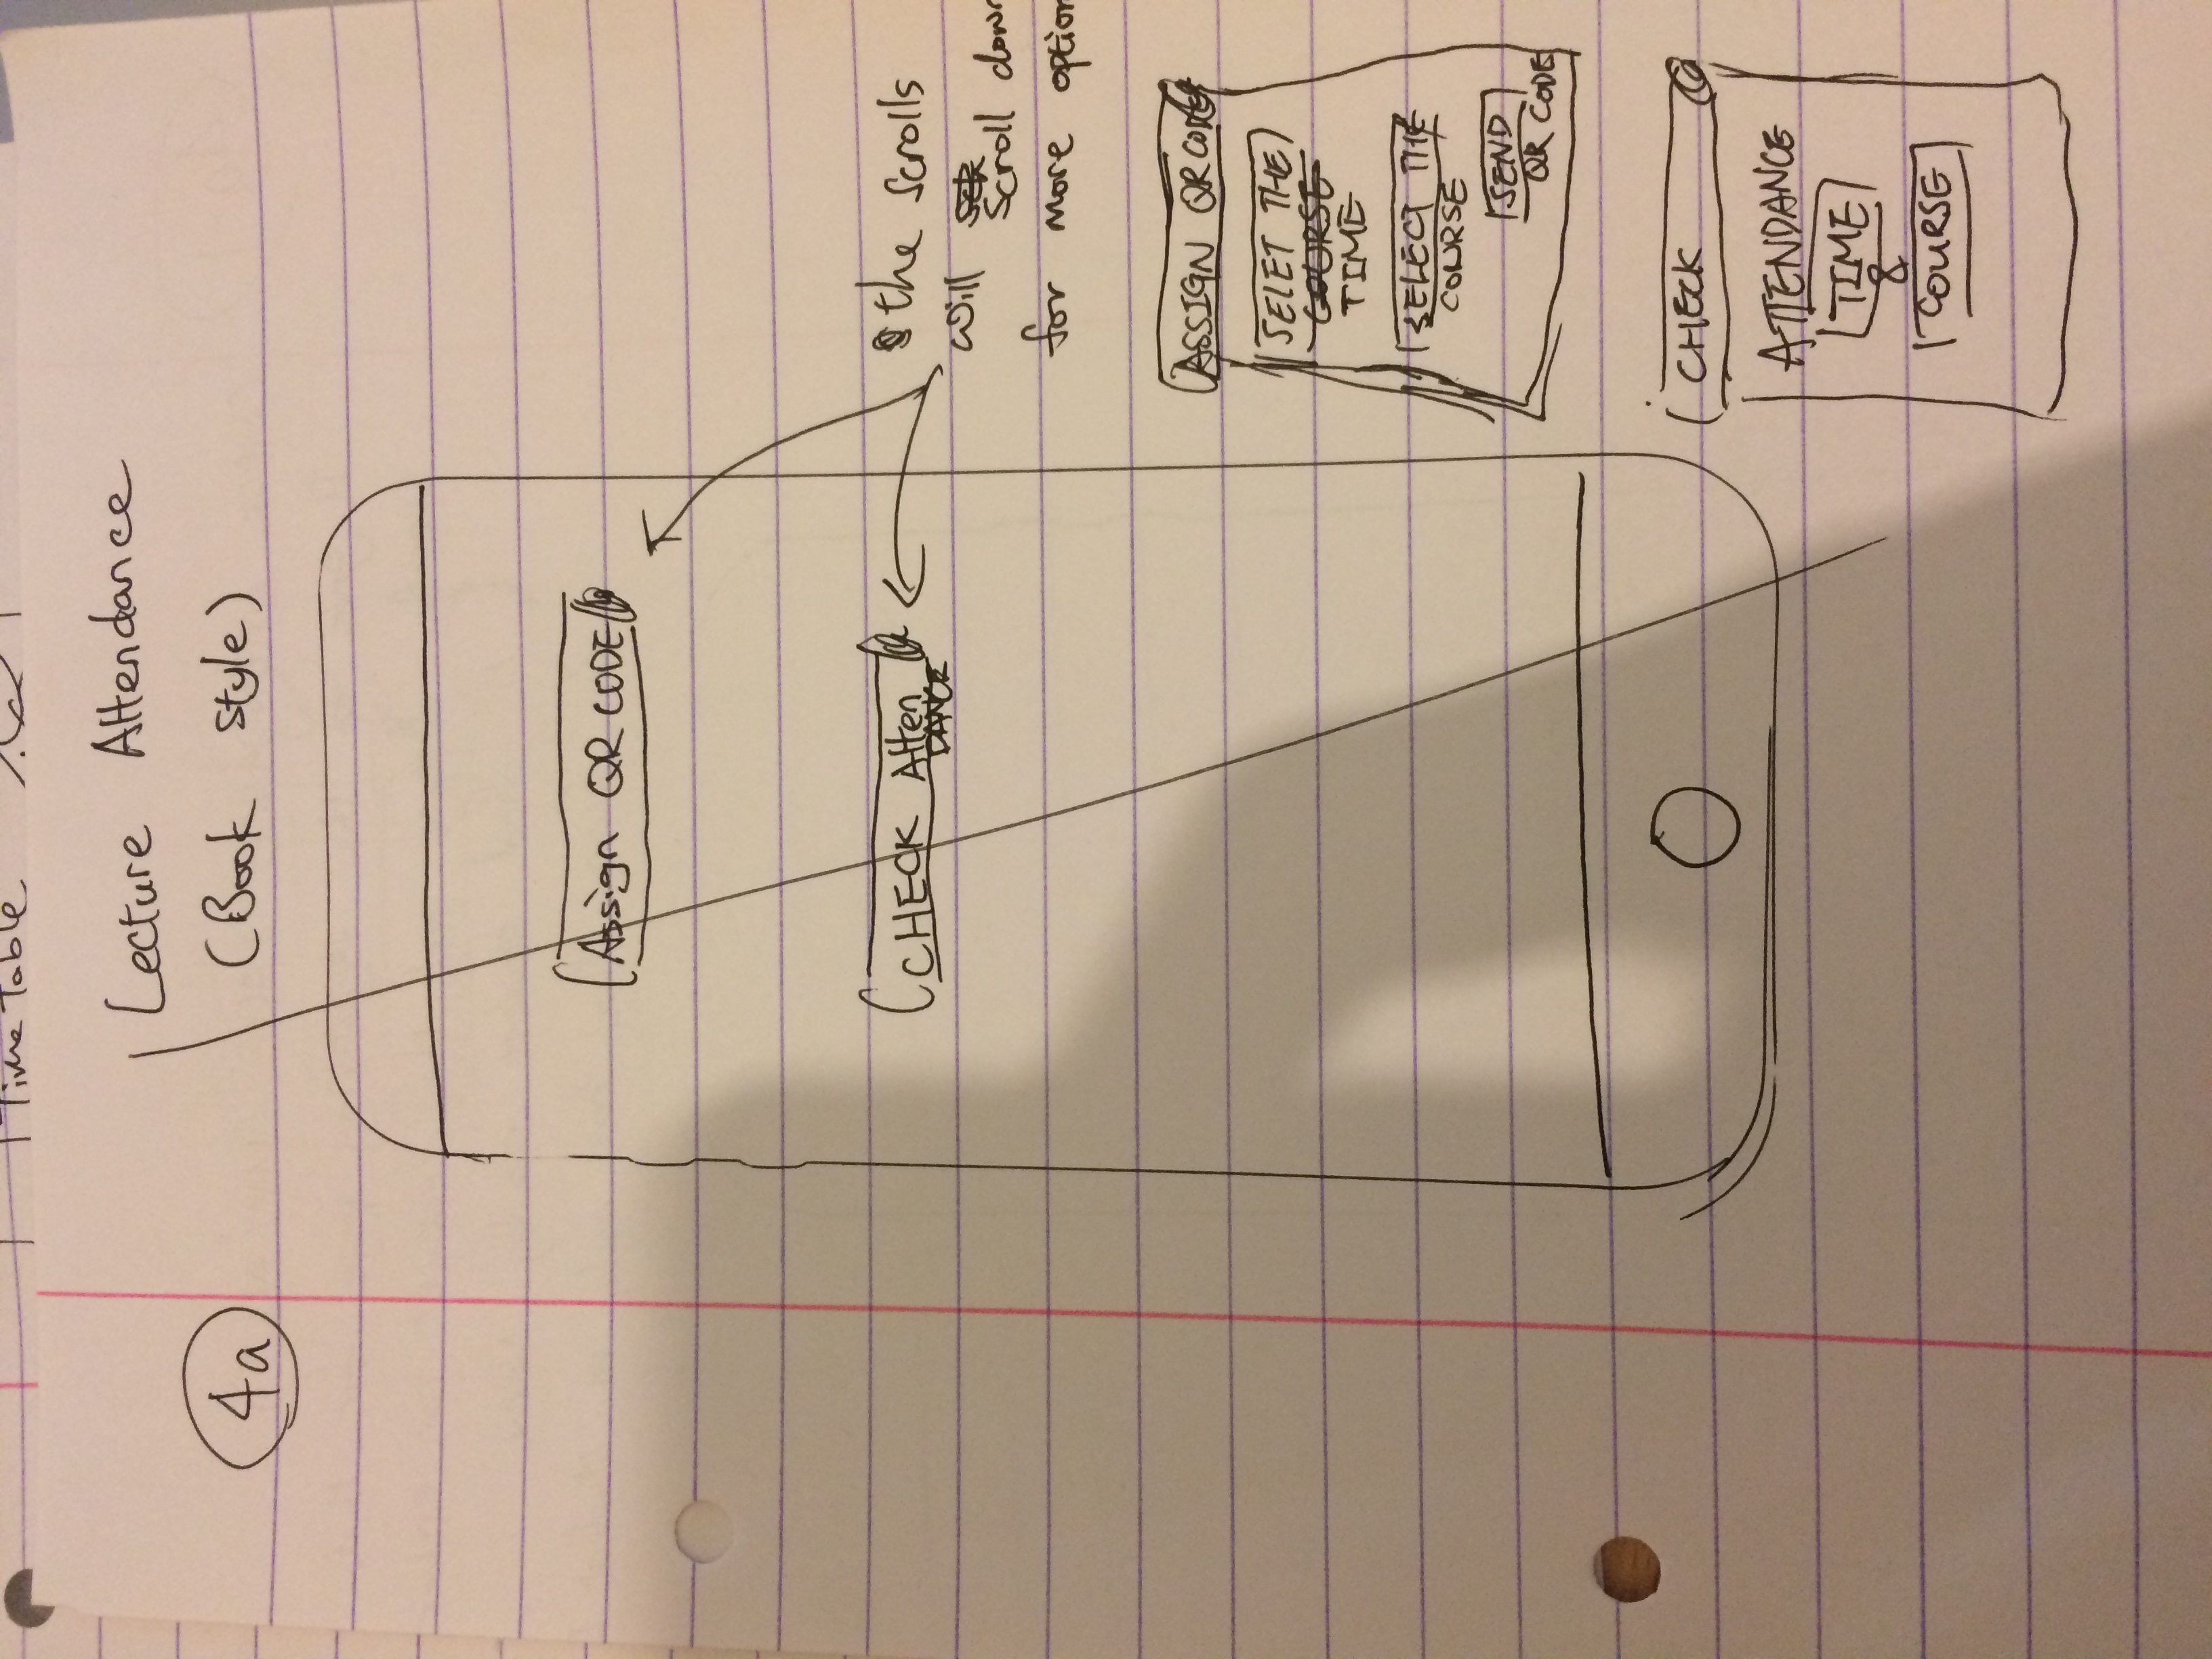 Time Table
Lecture Attendance
4a
(Book style)
Assign QR CODE
CHECK Atten
DANCE
the scrolls
will
scroll down
for more option
ASSIGN QR CODE
SELET THE
COURSE
TIME
SELECT THE
COURSE
SEND
QR CODE
CHECK
ATTENDANCE
TIME
&
COURSE